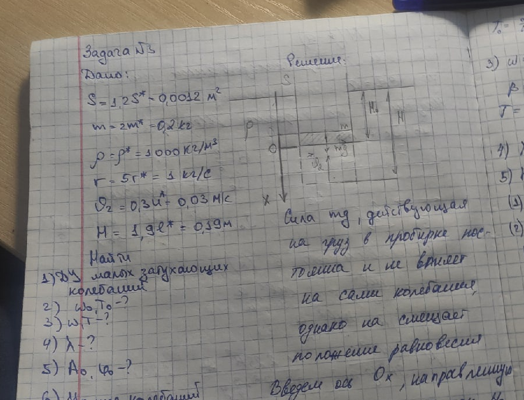 Задача №3
Дано:
S = 1,2S* = 0,0012 м²
m = 2m* = 0,2 кг
ρ = ρ* = 1000 кг/м³
r = 5r* = 1 кг/с
H = 1,9l* = 0,19 м
Найти
1) ДУ малых затухающих
колебаний
2) ω₀, T₀ - ?
3) ω, T - ?
4) λ - ?
5) A₀, φ₀ - ?
Решение:
S
ρ
O
X
m
H
Сила mg, действующая
на груз в пробирке пос-
тоянна и не влияет
на сами колебания,
однако на смещает
положение равновесия
Введем ось Ox, направленную
3) ω
T =
4) λ
5)
(1)
(2)